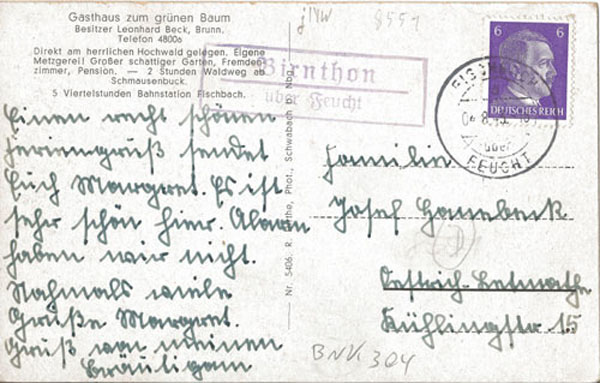 Gasthaus zum grünen Baum
Besitzer Leonhard Beck, Brunn.
Telefon 48006
Direkt am herrlichen Hochwald gelegen. Eigene
Metzgerei! Großer schattiger Garten, Fremden-
zimmer, Pension. — 2 Stunden Waldweg ab
Schmausenbuck.
5 Viertelstunden Bahnstation Fischbach.
Einen recht schönen
Feriengruß sendet
Euch Margret. Es ist
sehr schön hier. Alarm
haben wir nicht.
Nochmals viele
Grüße Margret.
Gruß von meinen
Bräutigam
Nr. 5406. Phot., Schwabach b. Nbg.
8559
Birnthon
über Feucht
6 6
DEUTSCHES REICH
über
FEUCHT
Familie
Josef
Oestrich-Letmathe
Kühlingstr. 15
BNK 304